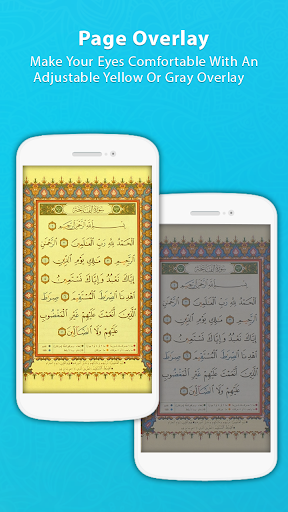 Page Overlay
Make Your Eyes Comfortable With An
Adjustable Yellow Or Gray Overlay
سُورَةُ الْفَاتِحَةِ
بِسْمِ اللَّهِ الرَّحْمَٰنِ الرَّحِيمِ
الْحَمْدُ لِلَّهِ رَبِّ الْعَالَمِينَ الرَّحْمَٰنِ
الرَّحِيمِ مَالِكِ يَوْمِ الدِّينِ
إِيَّاكَ نَعْبُدُ وَإِيَّاكَ نَسْتَعِينُ
اهْدِنَا الصِّرَاطَ الْمُسْتَقِيمَ صِرَاطَ
الَّذِينَ أَنْعَمْتَ عَلَيْهِمْ غَيْرِ الْمَغْضُوبِ
عَلَيْهِمْ وَلَا الضَّالِّينَ
سُورَةُ الْفَاتِحَةِ
بِسْمِ اللَّهِ الرَّحْمَٰنِ الرَّحِيمِ
الْحَمْدُ لِلَّهِ رَبِّ الْعَالَمِينَ الرَّحْمَٰنِ
الرَّحِيمِ مَالِكِ يَوْمِ الدِّينِ
إِيَّاكَ نَعْبُدُ وَإِيَّاكَ نَسْتَعِينُ
اهْدِنَا الصِّرَاطَ الْمُسْتَقِيمَ صِرَاطَ
الَّذِينَ أَنْعَمْتَ عَلَيْهِمْ غَيْرِ الْمَغْضُوبِ
عَلَيْهِمْ وَلَا الضَّالِّينَ